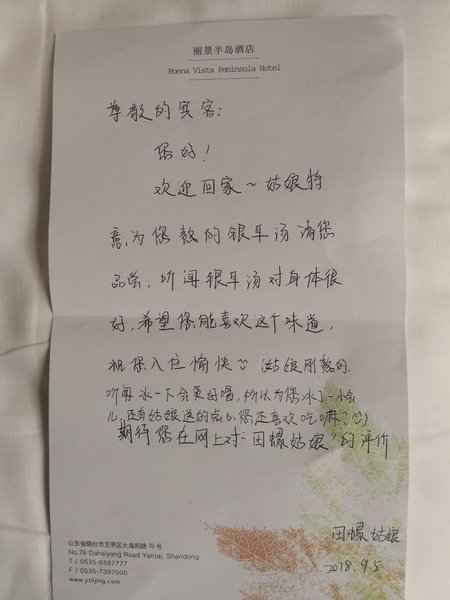 丽景半岛酒店
Buena Vista Peninsula Hotel
尊敬的宾客:
您好!
欢迎回家~姑娘特
意为您熬的银耳汤请您
品尝,听闻银耳汤对身体很
好,希望您能喜欢这个味道,
祝您入住愉快 (姑娘刚熬的,
听闻冰一下会更好喝,所以为您冰了一小会
儿,还有姑娘送的点心您还喜欢吃嘛?)
期待您在网上对“田螺姑娘”的评价
田螺姑娘
2018.9.5
山东省烟台市芝罘区大海阳路78号
No.78 Dahaiyang Road Yantai, Shandong
T / 0535-6587777
F / 0535-7397000
www.ytlijing.com